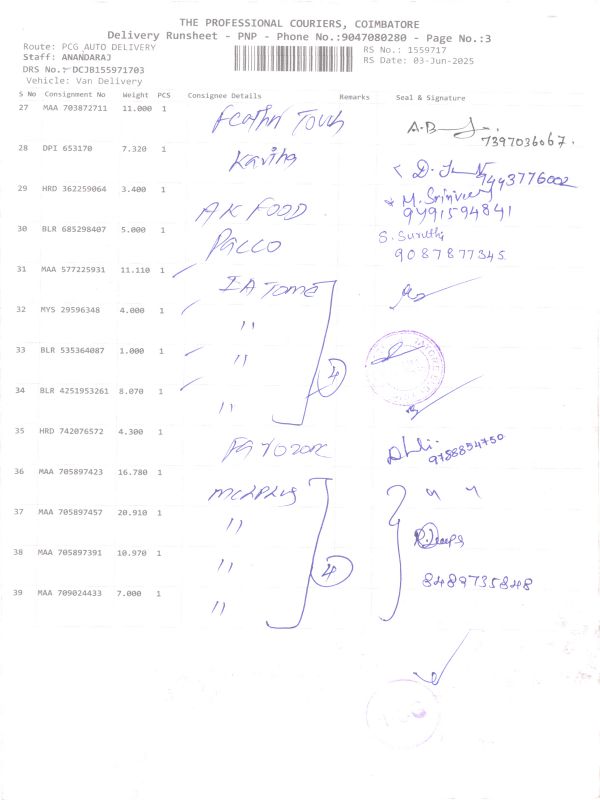 THE PROFESSIONAL COURIERS, COIMBATORE
Delivery Runsheet - PNP - Phone No.:9047080280 - Page No.:3
Route: PCG AUTO DELIVERY
RS No.: 1559717
Staff: ANANDARAJ
RS Date: 03-Jun-2025
DRS No.: DCJB155971703
Vehicle: Van Delivery
S No Consignment No Weight PCS Consignee Details Remarks Seal & Signature
27 MAA 703872711 11.000 1 Touch A.B
7397036067.
28 DPI 653170 7.320 1 Kavitha D.
9443776002
29 HRD 362259064 3.400 1 AK FOOD M. Srinivas
9791594841
30 BLR 685298407 5.000 1 PACCO S. Suruthi
9087877345
31 MAA 577225931 11.110 1 IA Tome
32 MYS 29596348 4.000 1 "
33 BLR 535364087 1.000 1 "
4
34 BLR 4251953261 8.070 1 "
35 HRD 742076572 4.300 1
9788854750
36 MAA 705897423 16.780 1 " "
37 MAA 705897457 20.910 1 "
38 MAA 705897391 10.970 1 "
4
8489735848
39 MAA 709024433 7.000 1 "